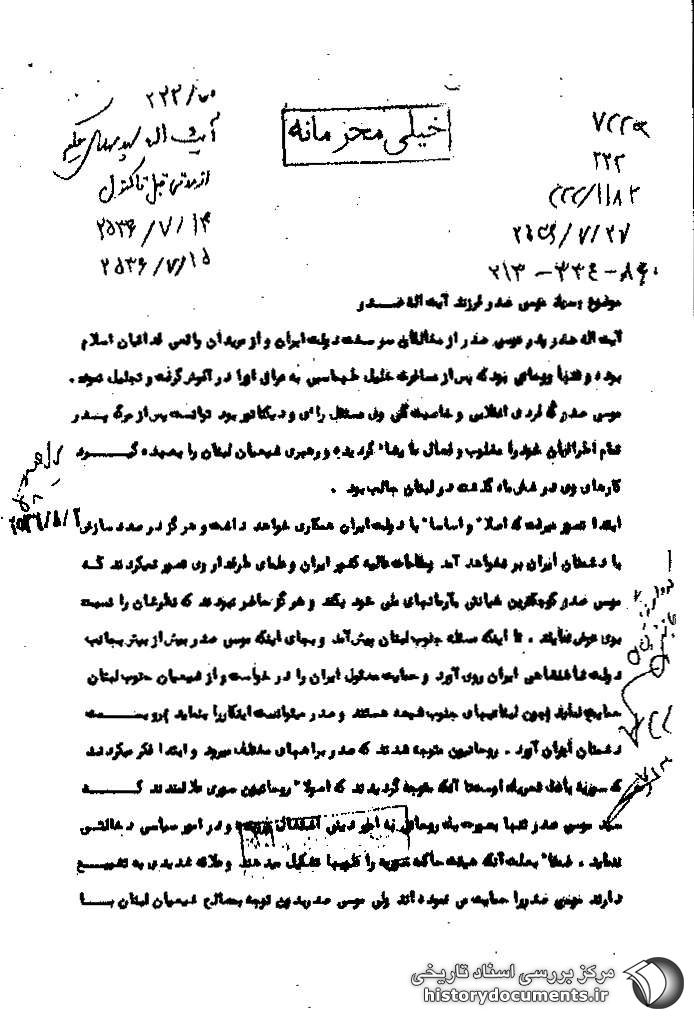 خیلی محرمانه
۲۳۳/۷۰
آیت اله سید مهدی حکیم
از مدتی قبل تا کنون
۲۵۳۶/۷/۱۴
۲۵۳۶/۷/۱۵
۲۲۲
۲۲۲/۱۱۸۲
۲۵۳۶/۷/۲۷
موضوع : سید موسی صدر فرزند آیت اله صدر
آیت اله صدر پدر موسی صدر از مخالفان سرسخت دولت ایران و از مریدان واقعی فدائیان اسلام
بوده و تنها روحانی بود که پس از مسافرت خلیل طهماسبی به عراق اورا در آغوش گرفت و تجلیل نمود .
موسی صدر که فردی انقلابی و خاصیت وی مستقل رای و دیکتاتور بود توانست پس از مرگ پدر
تمام اطرافیان خود را مغلوب و فعال مایشاء گردیده و رهبری شیعیان لبنان را بعهده گیرد
کارهای وی در شش ماه گذشته در لبنان جالب بود .
ابتدا تصور میرفت که اصلا" و اساسا" با دولت ایران همکاری خواهد داشت و هرگز در صدد سازش
با دشمنان ایران بر نخواهد آمد مقامات عالیه کشور ایران و علمای طرفدار وی تصور نمیکردند که
موسی صدر کوچکترین خیانتی بآرمانهای ملی خود بکند و هرگز حاضر نبودند که نظرشان را نسبت
بوی عوض نمایند . تا اینکه مسئله جنوب لبنان پیش آمد و بجای اینکه موسی صدر بیش از پیش بجانب
دولت شاهنشاهی ایران روی آورد و حمایت مسئول ایران را درخواست و از شیعیان جنوب لبنان
حمایت نماید (چون لبنانیهای جنوب شیعه هستند و صدر میتوانست اینکار را بنماید ) رو بسمت
دشمنان ایران آورد . روحانیون متوجه شدند که صدر براههای مختلف میرود و ابتدا فکر میکردند
که سوریه باعث تحریک اوست تا آنکه متوجه گردیدند که اصولا" روحانیون سوری علاقمندند که
سید موسی صدر تنها بصورت یک روحانی به امور دینی اشتغال ورزد و در امور سیاسی دخالتی
ننماید . ضمنا" بعلت آنکه هیئت حاکمه سوریه را علویها تشکیل میدهند و علاقه شدیدی به تشیع
دارند موسی صدر را حمایت می نموده اند ولی موسی صدر بدون توجه بمصالح شیعیان لبنان با
مرکز بررسی اسناد تاریخی
historydocuments.ir